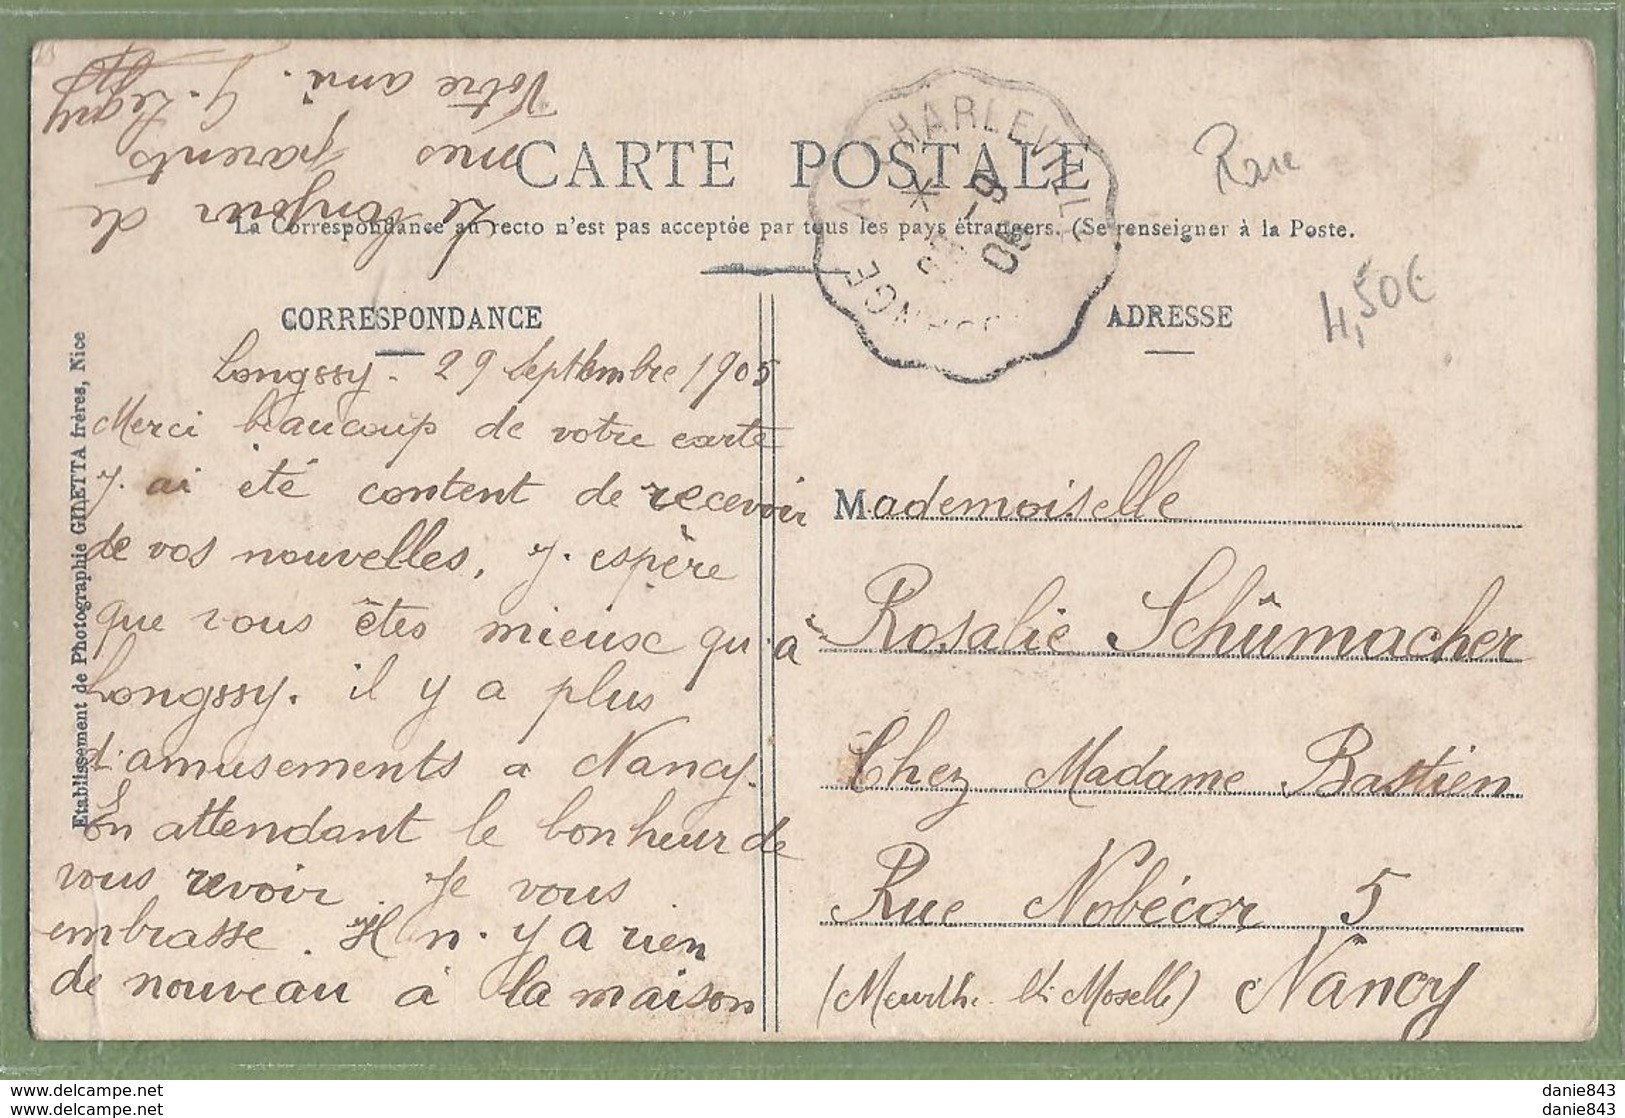 CARTE POSTALE
La Correspondance au recto n'est pas acceptée par tous les pays étrangers. (Se renseigner à la Poste.
CORRESPONDANCE
Longssy. 29 Septembre 1905
Merci beaucoup de votre carte
J. ai été content de recevoir
de vos nouvelles, J. espère
que vous êtes mieux qu'a
Longssy. il y a plus
d'amusements a Nancy.
En attendant le bonheur de
vous revoir. Je vous
embrasse. Il n. y a rien
de nouveau à la maison
Le bonjour de
mes parents
Votre ami. G. Legay
ADRESSE
Mademoiselle
Rosalie Schûmacher
Chez Madame Bastien
Rue Nobécor 5
(Meurthe et Moselle) Nancy
Etablissement de Photographie GILETTA frères, Nice
A CHARLEVILLE
05
Rare
4,50€
www.delcampe.net
danie843
www.delcampe.net
danie843